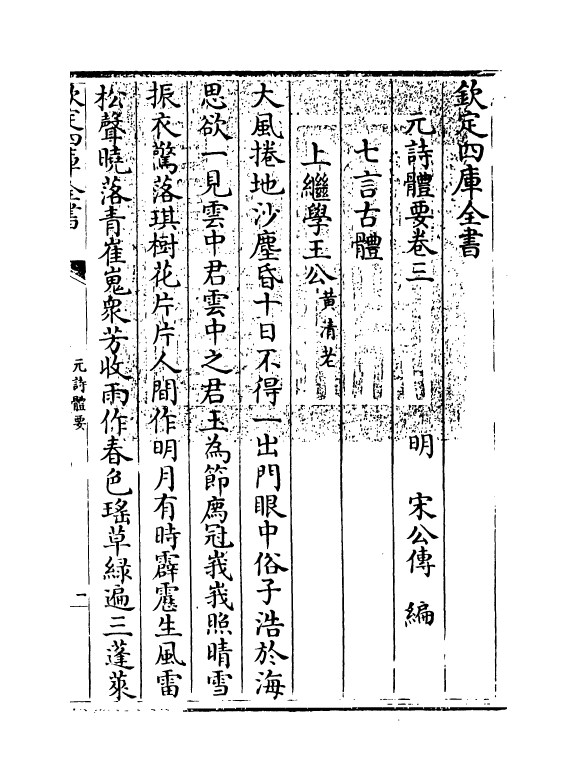 欽定四庫全書
元詩體要卷三
明 宋公傳 編
七言古體
上繼學王公 黄清老
大風捲地沙塵昏十日不得一出門眼中俗子浩於海
思欲一見雲中君雲中之君玉為節廌冠峩峩照晴雪
振衣驚落琪樹花片片人間作明月有時霹靂生風雷
松聲曉落青崔嵬衆芳收雨作春色瑤草緑遍三蓬萊
欽定四庫全書
元詩體要
二